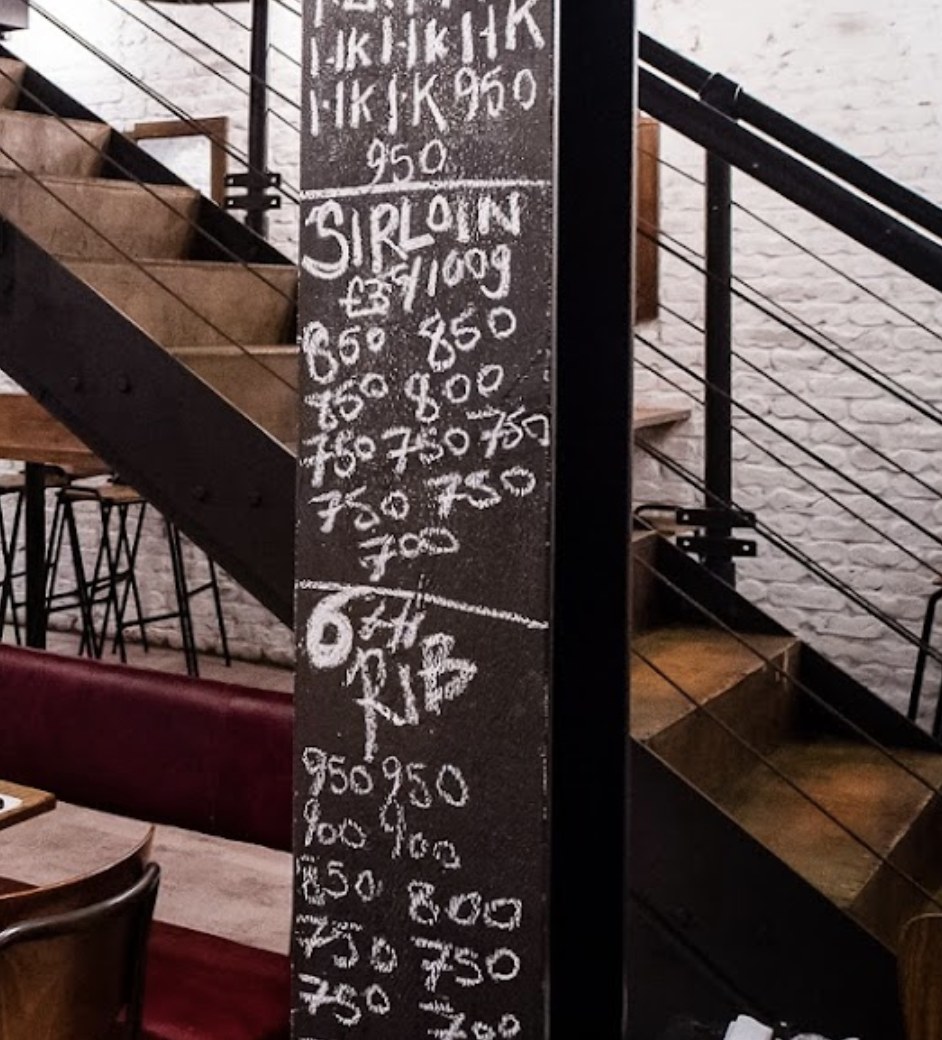 1·1K 1·1K 1·1K
1·1K 1·K 950
950
SIRLOIN
/100g
850 850
850 800
750 750 750
750 750
700
6TH
RIB
950 950
900 900
850 800
750 750
750 700